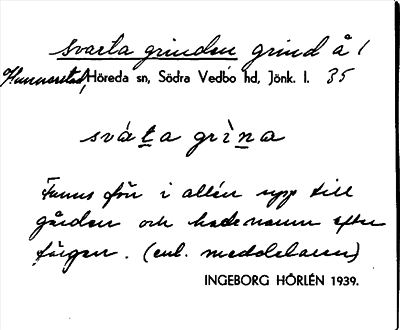 svarta grinden grind å 1
Hunnerstad, Höreda sn, Södra Vedbo hd, Jönk. l. 35
svá̀ta grìna
Fanns förr i allén upp till
gården och hade namn efter
färgen. (enl. meddelaren)
INGEBORG HÖRLÉN 1939.